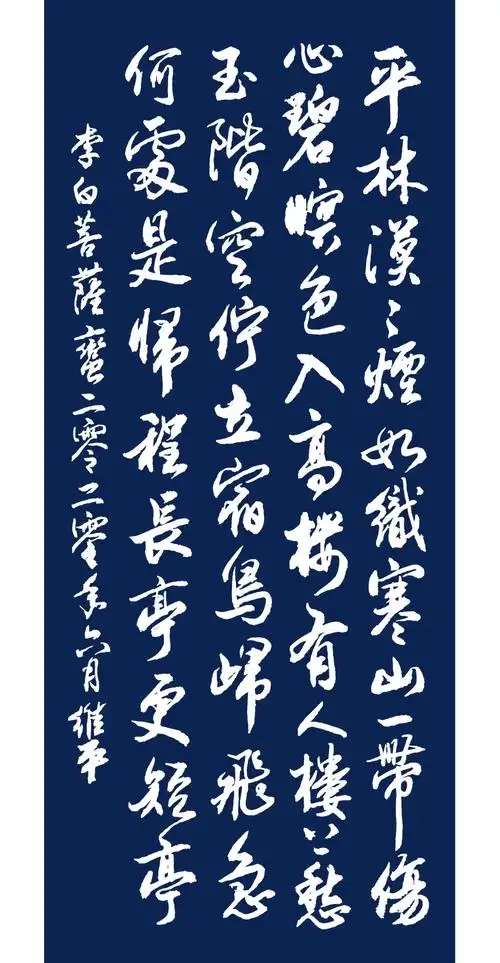 平林漠〻煙如織寒山一帶傷
心碧暝色入高樓有人樓上愁
玉階空佇立宿鳥歸飛急
何處是歸程長亭更短亭
李白菩薩蠻二零二零年六月維平